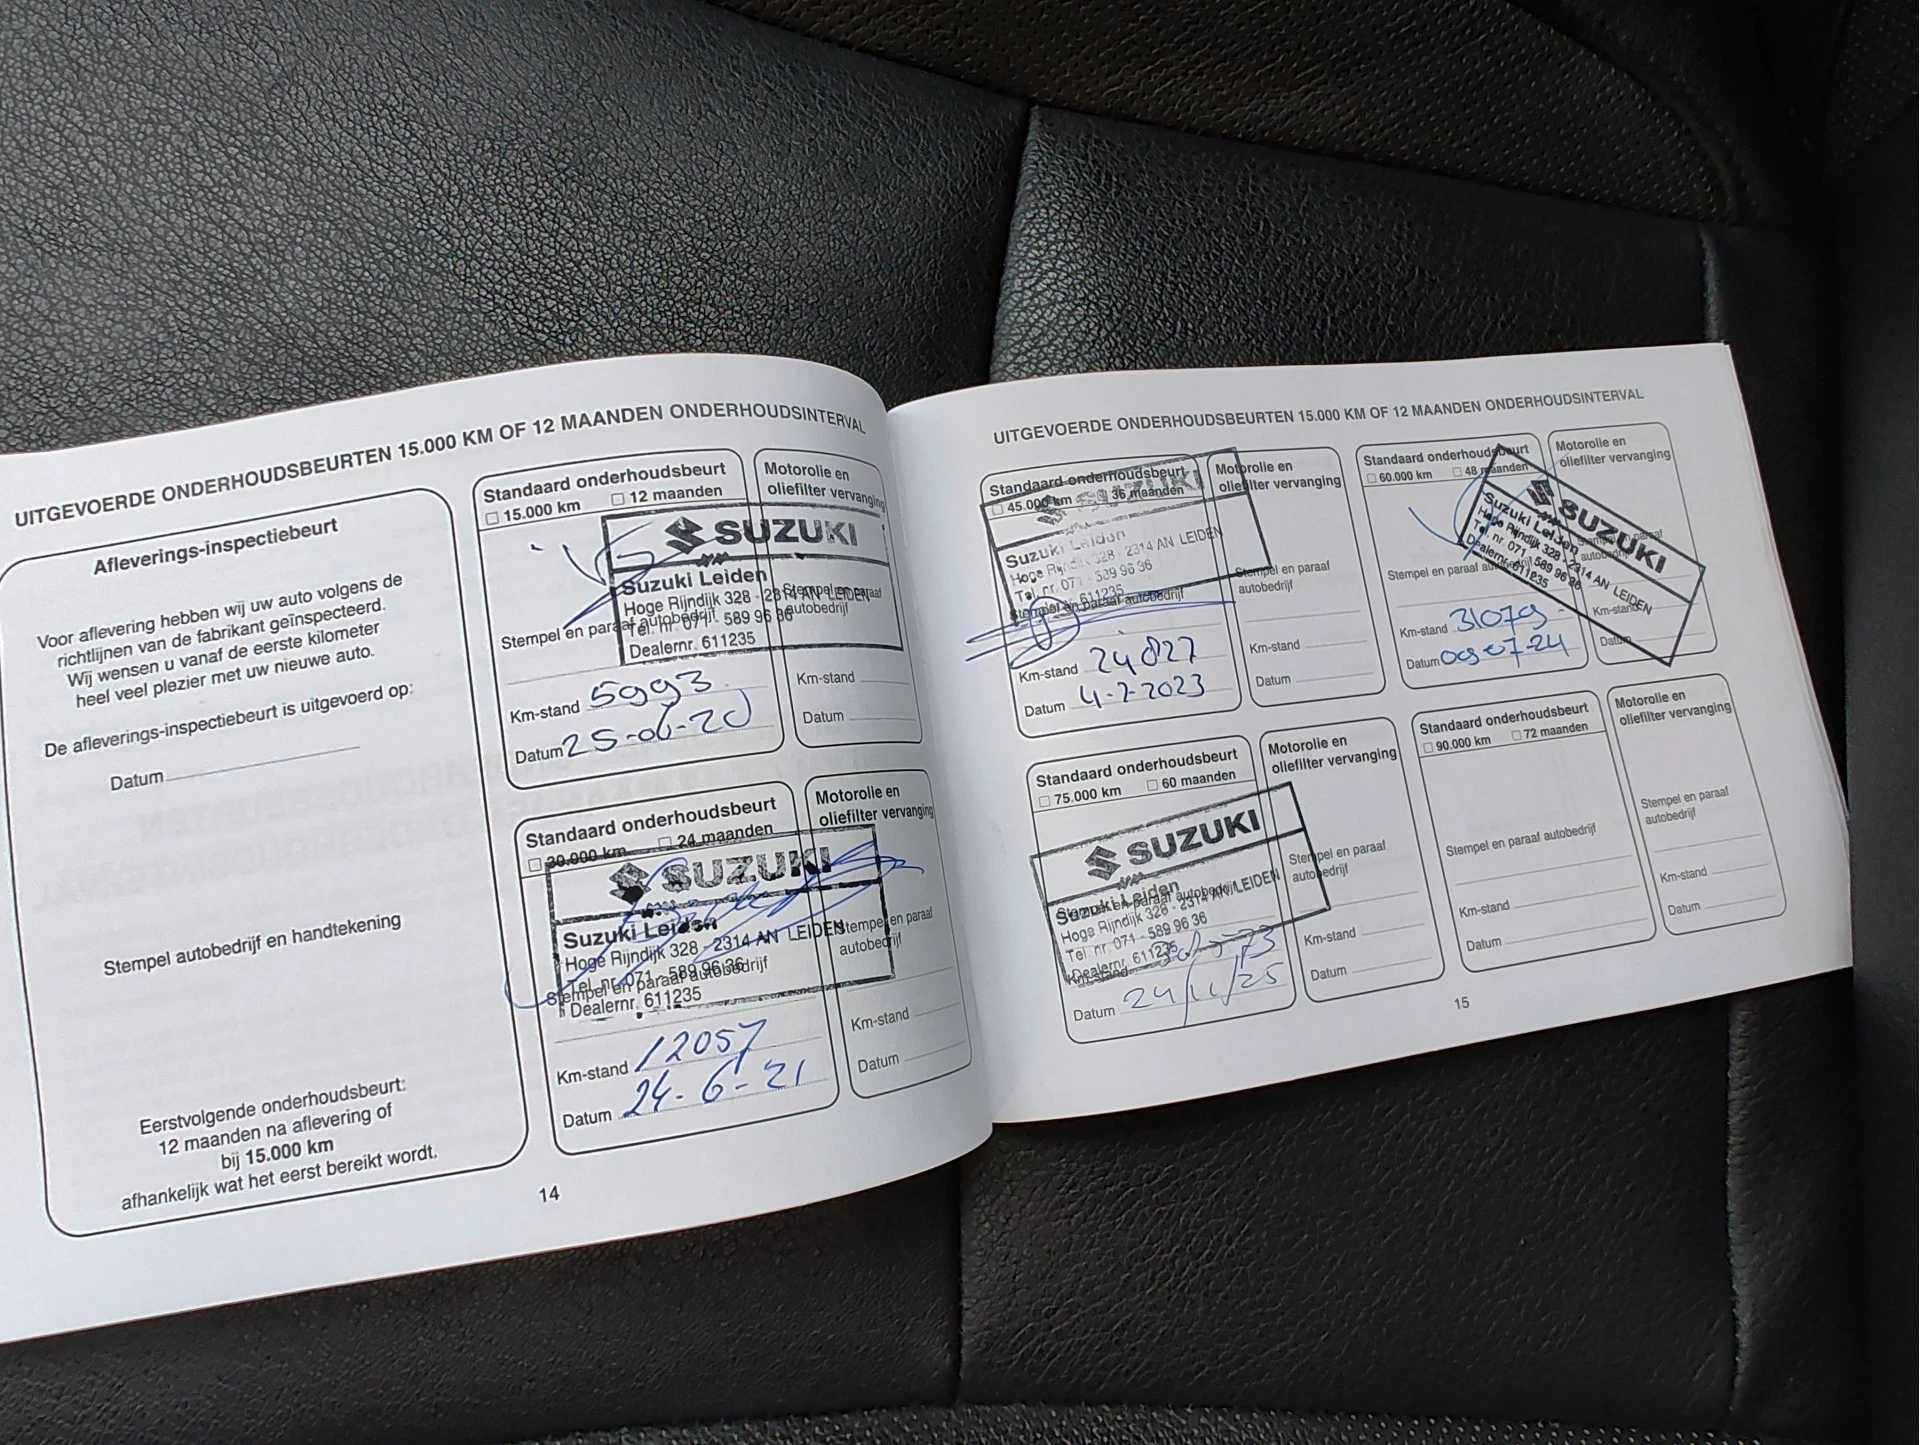 UITGEVOERDE ONDERHOUDSBEURTEN 15.000 KM OF 12 MAANDEN ONDERHOUDSINTERVAL
Afleverings-inspectiebeurt
Voor aflevering hebben wij uw auto volgens de
richtlijnen van de fabrikant geïnspecteerd.
Wij wensen u vanaf de eerste kilometer
heel veel plezier met uw nieuwe auto.
De afleverings-inspectiebeurt is uitgevoerd op:
Datum
Stempel autobedrijf en handtekening
Eerstvolgende onderhoudsbeurt:
12 maanden na aflevering of
bij 15.000 km
afhankelijk wat het eerst bereikt wordt.
Standaard onderhoudsbeurt
15.000 km 12 maanden
SUZUKI
Suzuki Leiden
Hoge Rijndijk 328 - 2314 AN LEIDEN
Stempel en paraaf autobedrijf
Tel. nr. 071 - 589 96 36
Dealernr. 611235
Km-stand 5993
Datum 25-06-20
Motorolie en
oliefilter vervanging
Stempel en paraaf
autobedrijf
Km-stand
Datum
Standaard onderhoudsbeurt
30.000 km 24 maanden
SUZUKI
Suzuki Leiden
Hoge Rijndijk 328 - 2314 AN LEIDEN
Tel. nr. 071 - 589 96 36
Stempel en paraaf autobedrijf
Dealernr. 611235
Km-stand 12057
Datum 24-6-21
Motorolie en
oliefilter vervanging
Stempel en paraaf
autobedrijf
Km-stand
Datum
14
UITGEVOERDE ONDERHOUDSBEURTEN 15.000 KM OF 12 MAANDEN ONDERHOUDSINTERVAL
Standaard onderhoudsbeurt
45.000 km 36 maanden
SUZUKI
Suzuki Leiden
Hoge Rijndijk 328 - 2314 AN LEIDEN
Tel. nr. 071 - 589 96 36
Dealernr. 611235
Stempel en paraaf autobedrijf
Km-stand 24827
Datum 4-7-2023
Motorolie en
oliefilter vervanging
Stempel en paraaf
autobedrijf
Km-stand
Datum
Standaard onderhoudsbeurt
60.000 km 48 maanden
SUZUKI
Suzuki Leiden
Hoge Rijndijk 328 - 2314 AN LEIDEN
Tel. nr. 071 - 589 96 36
Dealernr. 611235
Stempel en paraaf autobedrijf
Km-stand 31079
Datum 09-07-24
Motorolie en
oliefilter vervanging
Stempel en paraaf
autobedrijf
Km-stand
Datum
Standaard onderhoudsbeurt
75.000 km 60 maanden
SUZUKI
Suzuki Leiden
Stempel en paraaf autobedrijf
Hoge Rijndijk 328 - 2314 AN LEIDEN
Tel. nr. 071 - 589 96 36
Dealernr. 611235
Km-stand
Datum 24/11/25
Motorolie en
oliefilter vervanging
Stempel en paraaf
autobedrijf
Km-stand
Datum
Standaard onderhoudsbeurt
90.000 km 72 maanden
Stempel en paraaf autobedrijf
Km-stand
Datum
Motorolie en
oliefilter vervanging
Stempel en paraaf
autobedrijf
Km-stand
Datum
15